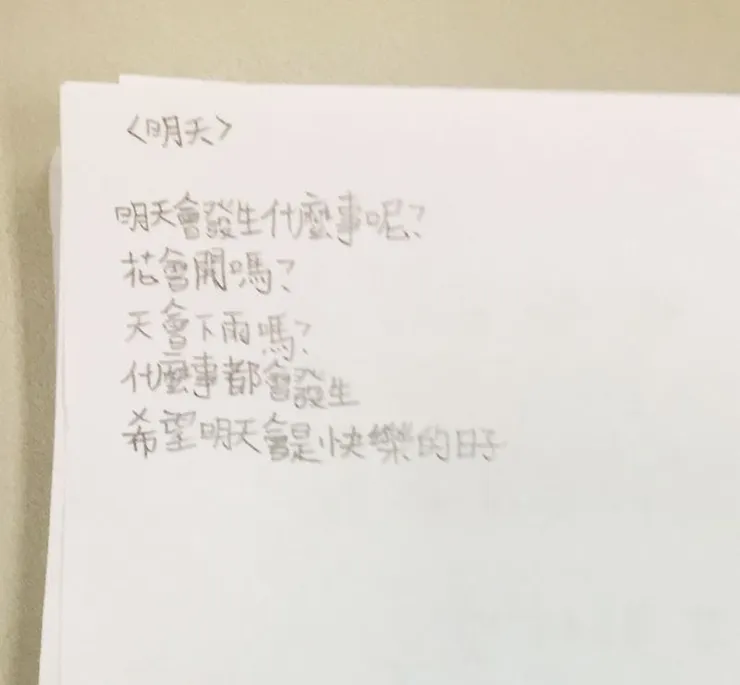 〈明天〉
明天會發生什麼事呢?
花會開嗎?
天會下雨嗎?
什麼事都會發生
希望明天會是快樂的日子